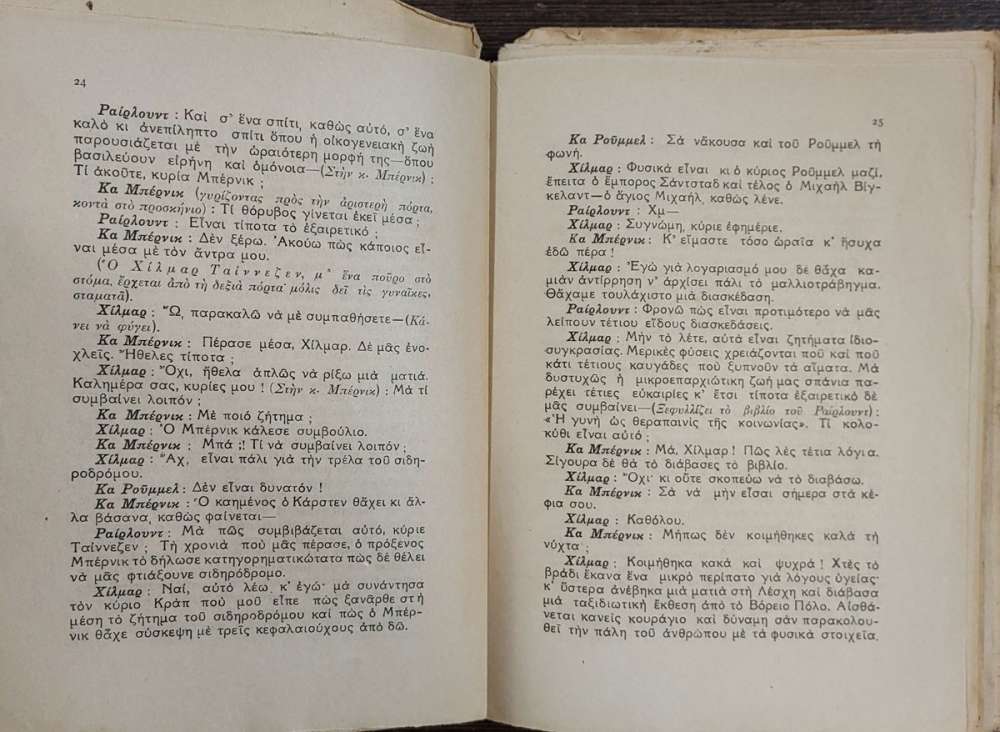 24
Ραίρλουντ : Καὶ σ' ἕνα σπίτι, καθὼς αὐτό, σ' ἕνα
καλὸ κι ἀνεπίληπτο σπίτι ὅπου ἡ οἰκογενειακὴ ζωὴ
παρουσιάζεται μὲ τὴν ὡραιότερη μορφή της—ὅπου
βασιλεύουν εἰρήνη καὶ ὁμόνοια—(Στὴν κ. Μπέρνικ) :
Τί ἀκοῦτε, κυρία Μπέρνικ ;
Κα Μπέρνικ (γυρίζοντας πρὸς τὴν ἀριστερὴ πόρτα,
κοντὰ στὸ προσκήνιο) : Τί θόρυβος γίνεται ἐκεῖ μέσα ;
Ραίρλουντ : Εἶναι τίποτα τὸ ἐξαιρετικό ;
Κα Μπέρνικ : Δὲν ξέρω. Ἀκούω πὼς κάποιος εἶ-
ναι μέσα μὲ τὸν ἄντρα μου.
(Ὁ Χίλμαρ Ταίννεζεν, μ' ἕνα ποῦρο στὸ
στόμα, ἔρχεται ἀπὸ τὴ δεξιὰ πόρτα· μόλις δεῖ τὶς γυναῖκες,
σταματᾶ).
Χίλμαρ : Ὤ, παρακαλῶ νὰ μὲ συμπαθήσετε—(Κά-
νει νὰ φύγει).
Κα Μπέρνικ : Πέρασε μέσα, Χίλμαρ. Δὲ μᾶς ἐνο-
χλεῖς. Ἤθελες τίποτα ;
Χίλμαρ : Ὄχι, ἤθελα ἁπλῶς νὰ ρίξω μιὰ ματιά.
Καλημέρα σας, κυρίες μου ! (Στὴν κ. Μπέρνικ) : Μὰ τί
συμβαίνει λοιπόν ;
Κα Μπέρνικ : Μὲ ποιό ζήτημα ;
Χίλμαρ : Ὁ Μπέρνικ κάλεσε συμβούλιο.
Κα Μπέρνικ : Μπά ;! Τί νὰ συμβαίνει λοιπόν ;
Χίλμαρ : Ἄχ, εἶναι πάλι γιὰ τὴν τρέλα τοῦ σιδη-
ροδρόμου.
Κα Ροῦμμελ : Δὲν εἶναι δυνατόν !
Κα Μπέρνικ : Ὁ καημένος ὁ Κάρστεν θἄχει κι ἄλ-
λα βάσανα, καθὼς φαίνεται—
Ραίρλουντ : Μὰ πῶς συμβιβάζεται αὐτό, κύριε
Ταίννεζεν ; Τὴ χρονιὰ ποὺ μᾶς πέρασε, ὁ πρόξενος
Μπέρνικ τὸ δήλωσε κατηγορηματικώτατα πὼς δὲ θέλει
νὰ μᾶς φτιάξουνε σιδηρόδρομο.
Χίλμαρ : Ναί, αὐτὸ λέω κ' ἐγώ· μὰ συνάντησα
τὸν κύριο Κρὰπ ποὺ μοῦ εἶπε πὼς ξανάρθε στὴ
μέση τὸ ζήτημα τοῦ σιδηροδρόμου καὶ πὼς ὁ Μπέρ-
νικ θἄχε σύσκεψη μὲ τρεῖς κεφαλαιούχους ἀπὸ δῶ.
25
Κα Ροῦμμελ : Σὰ νἄκουσα καὶ τοῦ Ροῦμμελ τὴ
φωνή.
Χίλμαρ : Φυσικὰ εἶναι κι ὁ κύριος Ροῦμμελ μαζί,
ἔπειτα ὁ ἔμπορος Σάντσταδ καὶ τέλος ὁ Μιχαὴλ Βίγ-
κελαντ—ὁ ἅγιος Μιχαήλ, καθὼς λένε.
Ραίρλουντ : Χμ—
Χίλμαρ : Συγνώμη, κύριε ἐφημέριε.
Κα Μπέρνικ : Κ' εἴμαστε τόσο ὡραῖα κ' ἥσυχα
ἐδῶ πέρα !
Χίλμαρ : Ἐγὼ γιὰ λογαριασμό μου δὲ θἄχα κα-
μιὰν ἀντίρρηση ν' ἀρχίσει πάλι τὸ μαλλιοτράβηγμα.
Θἄχαμε τουλάχιστο μιὰ διασκέδαση.
Ραίρλουντ : Φρονῶ πὼς εἶναι προτιμότερο νὰ μᾶς
λείπουν τέτιου εἴδους διασκεδάσεις.
Χίλμαρ : Μὴν τὸ λέτε, αὐτὰ εἶναι ζητήματα ἰδιο-
συγκρασίας. Μερικὲς φύσεις χρειάζονται ποῦ καὶ ποῦ
κάτι τέτιους καυγάδες ποὺ ξυπνοῦν τὰ αἵματα. Μὰ
δυστυχῶς ἡ μικροεπαρχιώτικη ζωή μας σπάνια πα-
ρέχει τέτιες εὐκαιρίες κ' ἔτσι τίποτα ἐξαιρετικὸ δὲ
μᾶς συμβαίνει—(Ξεφυλλίζει τὸ βιβλίο τοῦ Ραίρλουντ) :
«Ἡ γυνὴ ὡς θεραπαινὶς τῆς κοινωνίας». Τί κολο-
κύθι εἶναι αὐτό ;
Κα Μπέρνικ : Μά, Χίλμαρ ! Πῶς λὲς τέτια λόγια.
Σίγουρα δὲ θὰ τὸ διάβασες τὸ βιβλίο.
Χίλμαρ : Ὄχι· κι οὔτε σκοπεύω νὰ τὸ διαβάσω.
Κα Μπέρνικ : Σὰ νὰ μὴν εἶσαι σήμερα στὰ κέ-
φια σου.
Χίλμαρ : Καθόλου.
Κα Μπέρνικ : Μήπως δὲν κοιμήθηκες καλὰ τὴ
νύχτα ;
Χίλμαρ : Κοιμήθηκα κακὰ καὶ ψυχρά ! Χτὲς τὸ
βράδι ἔκανα ἕνα μικρὸ περίπατο γιὰ λόγους ὑγείας·
κ' ὕστερα ἀνέβηκα μιὰ ματιὰ στὴ Λέσχη καὶ διάβασα
μιὰ ταξιδιωτικὴ ἔκθεση ἀπὸ τὸ Βόρειο Πόλο. Αἰσθά-
νεται κανεὶς κουράγιο καὶ δύναμη σὰν παρακολου-
θεῖ τὴν πάλη τοῦ ἀνθρώπου μὲ τὰ φυσικὰ στοιχεῖα.